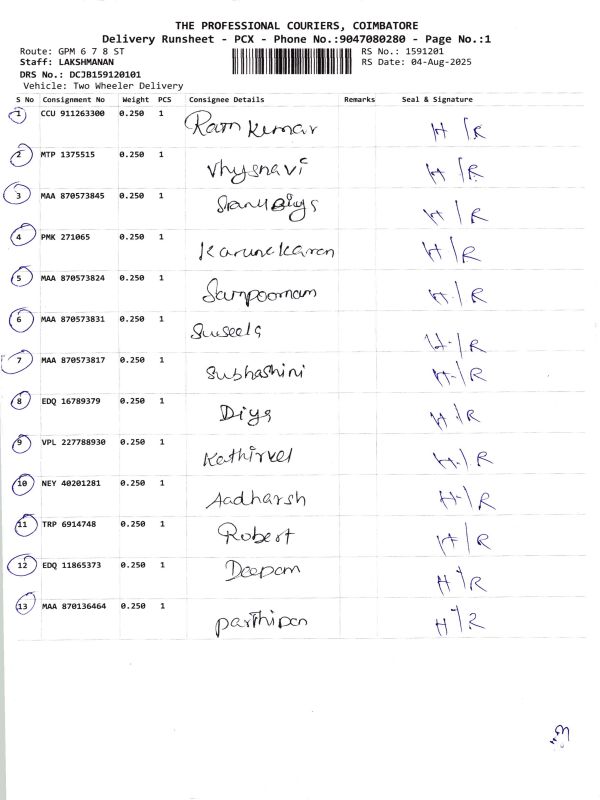 THE PROFESSIONAL COURIERS, COIMBATORE
Delivery Runsheet - PCX - Phone No.:9047080280 - Page No.:1
Route: GPM 6 7 8 ST RS No.: 1591201
Staff: LAKSHMANAN RS Date: 04-Aug-2025
DRS No.: DCJB159120101
Vehicle: Two Wheeler Delivery
S No Consignment No Weight PCS Consignee Details Remarks Seal & Signature
1 CCU 911263300 0.250 1 Ram Kumar H/R
2 MTP 1375515 0.250 1 Vhysnavi H/R
3 MAA 870573845 0.250 1 H/R
4 PMK 271065 0.250 1 Karunakaran H/R
5 MAA 870573824 0.250 1 Sampoornam H/R
6 MAA 870573831 0.250 1 Suseela H/R
7 MAA 870573817 0.250 1 Subhashini H/R
8 EDQ 16789379 0.250 1 Diya H/R
9 VPL 227788930 0.250 1 Kathirvel H/R
10 NEY 40201281 0.250 1 Aadharsh H/R
11 TRP 6914748 0.250 1 Robert H/R
12 EDQ 11865373 0.250 1 Deepam H/R
13 MAA 870136464 0.250 1 Parthipan H/R